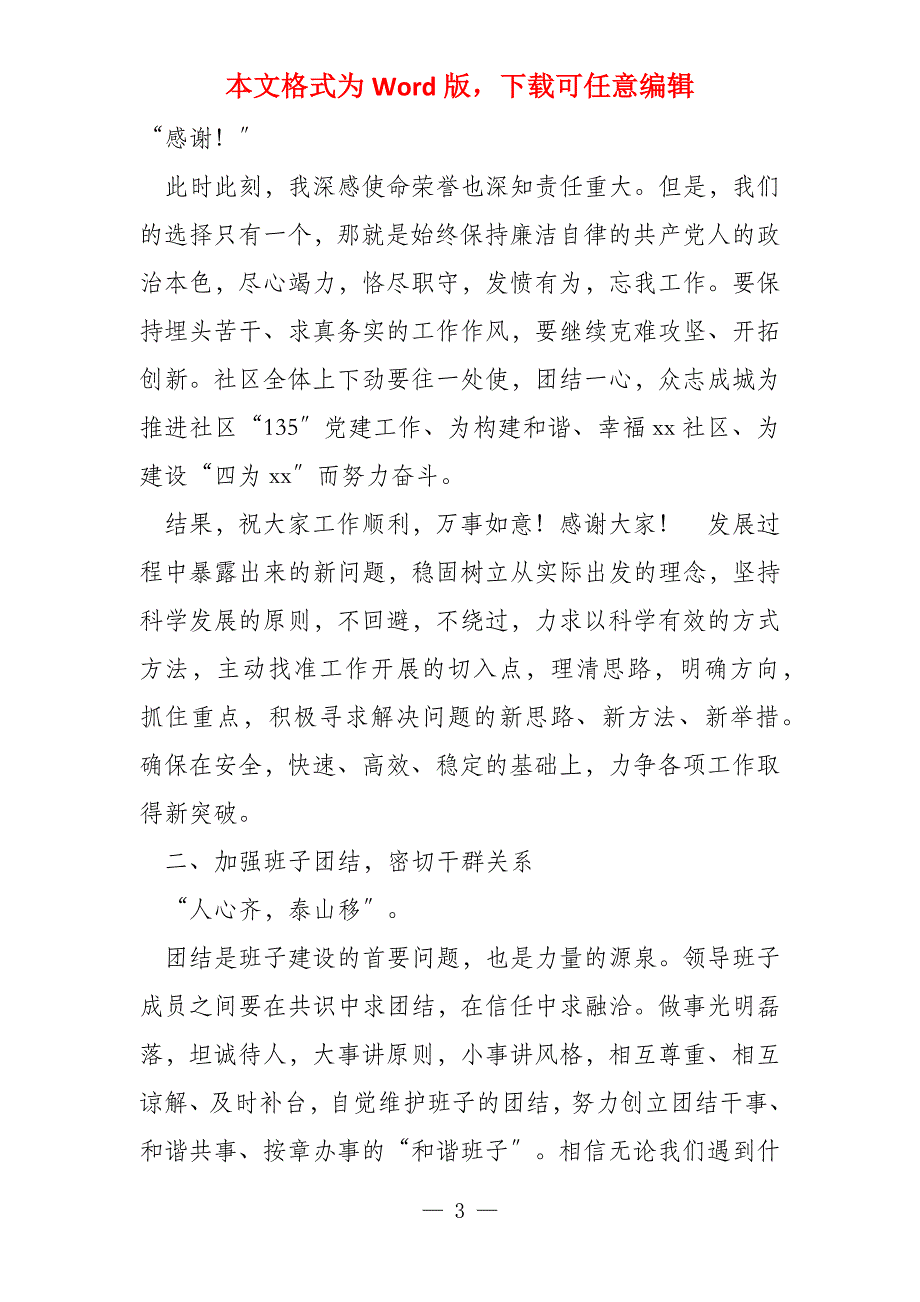 本文格式为 Word 版，下载可任意编辑
“感谢！〞
此时此刻，我深感使命荣誉也深知责任重大。但是，我们
的选择只有一个，那就是始终保持廉洁自律的共产党人的政
治本色，尽心竭力，恪尽职守，发愤有为，忘我工作。要保
持埋头苦干、求真务实的工作作风，要继续克难攻坚、开拓
创新。社区全体上下劲要往一处使，团结一心，众志成城为
推进社区“135〞党建工作、为构建和谐、幸福 xx 社区、为
建设“四为 xx〞而努力奋斗。
结果，祝大家工作顺利，万事如意！感谢大家！　发展过
程中暴露出来的新问题，稳固树立从实际出发的理念，坚持
科学发展的原则，不回避，不绕过，力求以科学有效的方式
方法，主动找准工作开展的切入点，理清思路，明确方向，
抓住重点，积极寻求解决问题的新思路、新方法、新举措。
确保在安全，快速、高效、稳定的基础上，力争各项工作取
得新突破。
二、加强班子团结，密切干群关系
“人心齐，泰山移〞。
团结是班子建设的首要问题，也是力量的源泉。领导班子
成员之间要在共识中求团结，在信任中求融洽。做事光明磊
落，坦诚待人，大事讲原则，小事讲风格，相互尊重、相互
谅解、及时补台，自觉维护班子的团结，努力创立团结干事、
和谐共事、按章办事的“和谐班子〞。相信无论我们遇到什
— 3 —